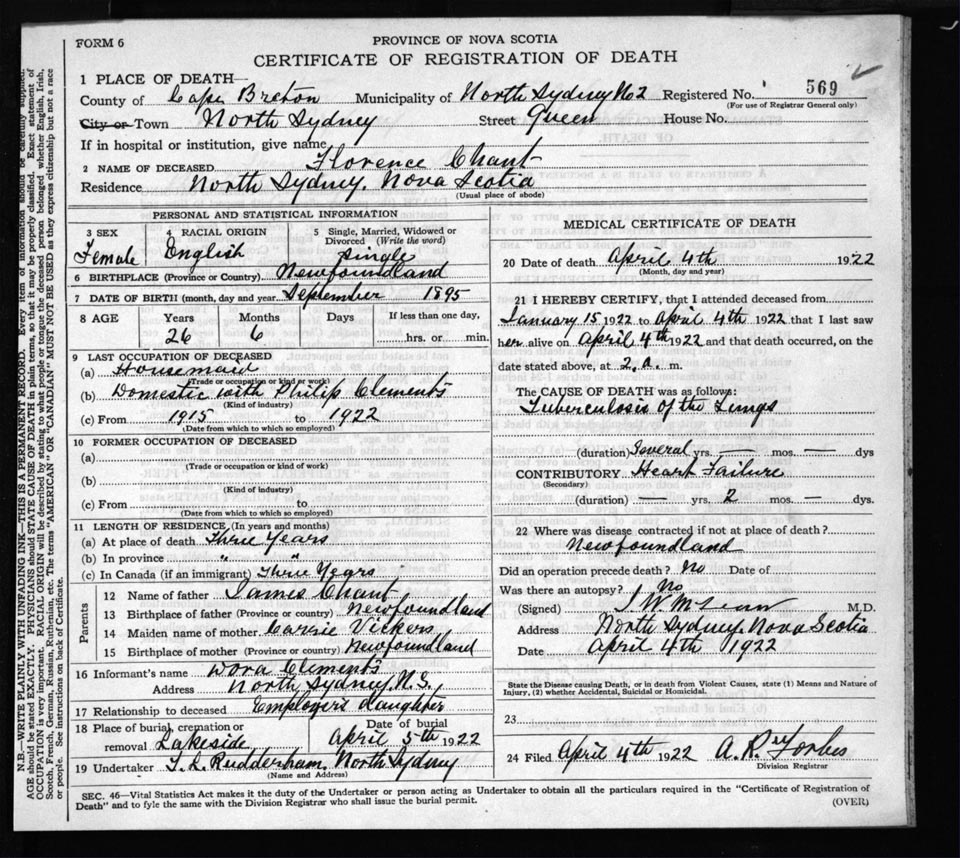 FORM 6
PROVINCE OF NOVA SCOTIA
CERTIFICATE OF REGISTRATION OF DEATH
1 PLACE OF DEATH—
County of Cape Breton Municipality of North Sydney No 2 Registered No. 569
(For use of Registrar General only)
City or Town North Sydney Street Queen House No.
If in hospital or institution, give name
2 NAME OF DECEASED Florence Chant
Residence North Sydney, Nova Scotia
(Usual place of abode)
PERSONAL AND STATISTICAL INFORMATION
3 SEX 4 RACIAL ORIGIN 5 Single, Married, Widowed or Divorced (Write the word)
Female English Single
6 BIRTHPLACE (Province or Country) Newfoundland
7 DATE OF BIRTH (month, day and year) September 1895
8 AGE Years Months Days If less than one day,
26 6 hrs. or min.
9 LAST OCCUPATION OF DECEASED
(a) Housemaid
(Trade or occupation or kind of work)
(b) Domestic with Philip Clements
(Kind of industry)
(c) From 1915 to 1922
(Date from which to which so employed)
10 FORMER OCCUPATION OF DECEASED
(a)
(Trade or occupation or kind of work)
(b)
(Kind of industry)
(c) From to
(Date from which to which so employed)
11 LENGTH OF RESIDENCE (In years and months)
(a) At place of death Three Years
(b) In province " "
(c) In Canada (if an immigrant) Three Years
Parents
12 Name of father James Chant
13 Birthplace of father (Province or country) Newfoundland
14 Maiden name of mother Carrie Vickers
15 Birthplace of mother (Province or country) Newfoundland
16 Informant's name Dora Clements
Address North Sydney, N.S.
17 Relationship to deceased Employers daughter
18 Place of burial, cremation or removal Lakeside Date of burial April 5th 1922
19 Undertaker Rudderham, North Sydney
(Name and Address)
MEDICAL CERTIFICATE OF DEATH
20 Date of death April 4th 1922
(Month, day and year)
21 I HEREBY CERTIFY, that I attended deceased from
January 15 1922 to April 4th 1922 that I last saw
her alive on April 4th 1922 and that death occurred, on the
date stated above, at 2. A. m.
The CAUSE OF DEATH was as follows:
Tuberculosis of the Lungs
(duration) Several yrs. — mos. — dys
CONTRIBUTORY Heart Failure
(Secondary)
(duration) — yrs. 2 mos. — dys.
22 Where was disease contracted if not at place of death?
Newfoundland
Did an operation precede death? No Date of
Was there an autopsy? No
(Signed) M.D.
Address North Sydney, Nova Scotia
Date April 4th 1922
State the Disease causing Death, or in death from Violent Causes, state (1) Means and Nature of
Injury, (2) whether Accidental, Suicidal or Homicidal.
23
24 Filed April 4th 1922 A. R. Forbes
Division Registrar
SEC. 46—Vital Statistics Act makes it the duty of the Undertaker or person acting as Undertaker to obtain all the particulars required in the "Certificate of Registration of
Death" and to fyle the same with the Division Registrar who shall issue the burial permit.
(OVER)
N.B.—WRITE PLAINLY WITH UNFADING INK—THIS IS A PERMANENT RECORD. Every item of information should be carefully supplied.
AGE should be stated EXACTLY. PHYSICIANS should STATE CAUSE OF DEATH in plain terms, so that it may be properly classified. Exact statement of
OCCUPATION is very important. RACIAL ORIGIN will be described by stating to what people or tongue the deceased person belonged whether English, Irish,
Scotch, French, German, Russian, Ruthenian, etc. The terms "AMERICAN" OR "CANADIAN" MUST NOT BE USED as they express citizenship but not a race
or people. See instructions on back of Certificate.